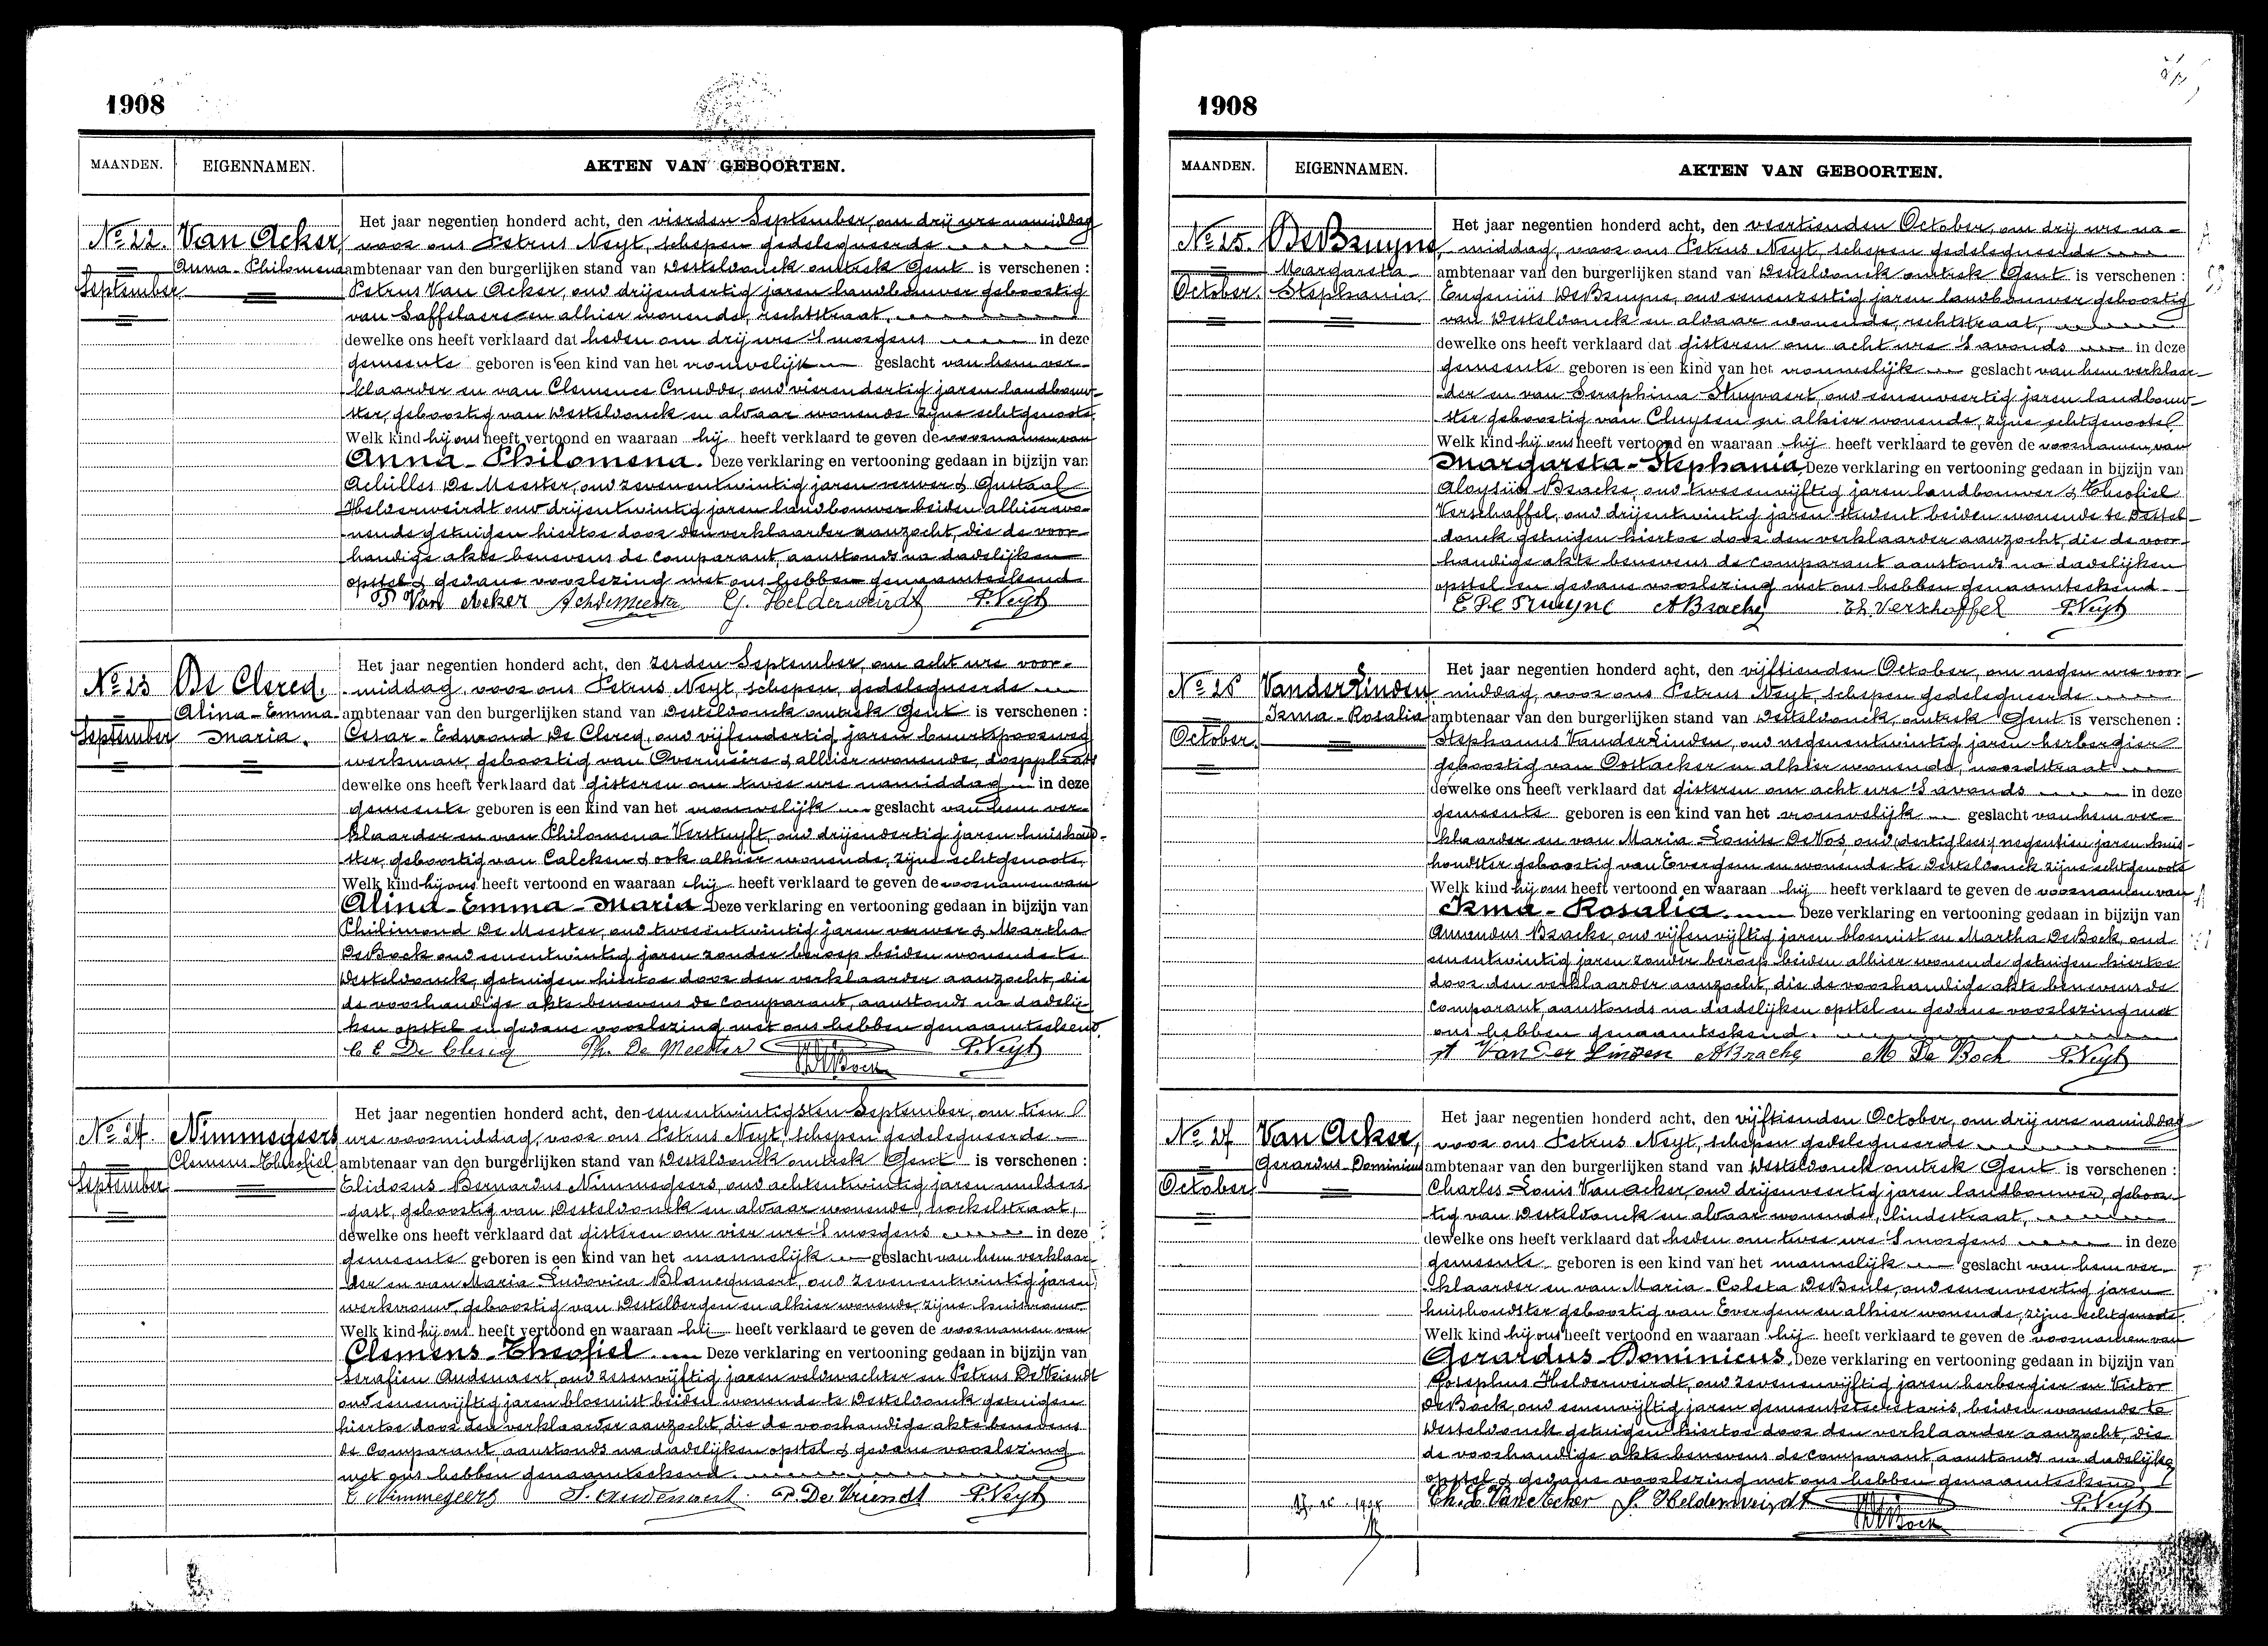 1908
MAANDEN. EIGENNAMEN. AKTEN VAN GEBOORTEN.
Nº 22. Van Acker,
Anna-Philomena
September
Het jaar negentien honderd acht, den vierden September, om drij ure namiddag
voor ons Petrus Neyt, schepen gedelegueerde
ambtenaar van den burgerlijken stand van Desteldonck omtrek Gent is verschenen :
Petrus Van Acker, oud drijendertig jaren landbouwer geboortig
van Saffelaere en alhier wonende, rechtstraat,
dewelke ons heeft verklaard dat heden om drij ure 's morgens in deze
gemeente geboren is een kind van het vrouwelijk geslacht van hem ver-
klaarder en van Clemence Cnudde, oud vierendertig jaren landbouw-
ster, geboortig van Desteldonck en aldaar wonende zijne echtgenoote.
Welk kind hij ons heeft vertoond en waaraan hij heeft verklaard te geven de voornamen van
Anna-Philomena. Deze verklaring en vertooning gedaan in bijzijn van
Achilles De Meester, oud zevenentwintig jaren verwer & Gustaaf
Helderweirdt oud drijentwintig jaren landbouwer beiden alhier wo-
nende getuigen hiertoe door den verklaarder aanzocht, die de voor-
handige akte benevens de comparant aanstonds na dadelijken
opstel & gedane voorlezing met ons hebben genaamteekend
P Van Acker Ach demeester G. Helderweirdt P. Neyt
Nº 23 De Clercq,
Alina-Emma-
September Maria.
Het jaar negentien honderd acht, den zesden September, om acht ure voor-
middag, voor ons Petrus Neyt, schepen, gedelegueerde
ambtenaar van den burgerlijken stand van Desteldonck omtrek Gent is verschenen :
Cesar-Edmond De Clercq, oud vijfendertig jaren buurtspoorweg
werkman, geboortig van Overmeire & alhier wonende, dorpplaats
dewelke ons heeft verklaard dat gisteren om twee ure namiddag in deze
gemeente geboren is een kind van het vrouwelijk geslacht van hem ver-
klaarder en van Philomena Verstuyft, oud drijendertig jaren huishoud-
ster, geboortig van Calcken & ook alhier wonende, zijne echtgenoote,
Welk kind hij ons heeft vertoond en waaraan hij heeft verklaard te geven de voornamen van
Alina-Emma-Maria Deze verklaring en vertooning gedaan in bijzijn van
Philimond De Meester, oud tweeentwintig jaren verwer & Martha
De Bock oud eenentwintig jaren zonder beroep beiden wonende te
Desteldonck, getuigen hiertoe door den verklaarder aanzocht, die
de voorhandige akte benevens de comparant, aanstonds na dadelij-
ken opstel en gedane voorlezing met ons hebben genaamteekend.
C E De Clercq Ph. De Meester De Bock P. Neyt
Nº 24. Nimmegeers
Clemens-Theofiel
September
Het jaar negentien honderd acht, den eenentwintigsten September, om tien
ure voormiddag, voor ons Petrus Neyt, schepen gedelegueerde
ambtenaar van den burgerlijken stand van Desteldonck omtrek Gent is verschenen :
Elidorus Bernardus Nimmegeers, oud achtentwintig jaren mulders
gast, geboortig van Desteldonck en aldaar wonende, hockelstraat,
dewelke ons heeft verklaard dat gisteren om vier ure 's morgens in deze
gemeente geboren is een kind van het mannelijk geslacht van hem verklaar-
der en van Maria Ludovica Blancquaert, oud zevenentwintig jaren
werkvrouw, geboortig van Destelbergen en alhier wonende, zijne huisvrouw
Welk kind hij ons heeft vertoond en waaraan hij heeft verklaard te geven de voornamen van
Clemens-Theofiel Deze verklaring en vertooning gedaan in bijzijn van
Serafien Audenaert, oud zessenvijftig jaren veldwachter en Petrus De Vriendt
oud eenenvijftig jaren bloemist beiden wonende te Desteldonck getuigen
hiertoe door den verklaarder aanzocht, die de voorhandige akte benevens
de comparant, aanstonds na dadelijken opstel & gedane voorlezing
met ons hebben genaamteekend.
E Nimmegeers S. Audenaert P. De Vriendt P. Neyt
1908
MAANDEN. EIGENNAMEN. AKTEN VAN GEBOORTEN.
Nº 25. De Bruyne,
Margareta-
October. Stephania.
Het jaar negentien honderd acht, den veertienden October, om drij ure na-
middag, voor ons Petrus Neyt, schepen gedelegueerde
ambtenaar van den burgerlijken stand van Desteldonck omtrek Gent is verschenen :
Eugeniüs De Bruyne, oud eenenveertig jaren landbouwer geboortig
van Desteldonck en aldaar wonende, rechtstraat,
dewelke ons heeft verklaard dat gisteren om acht ure 's avonds in deze
gemeente geboren is een kind van het vrouwelijk geslacht van hem verklaar-
der en van Seraphina Stuyvaert, oud eenenveertig jaren landbouw-
ster geboortig van Cluysen en alhier wonende, zijne echtgenoote.
Welk kind hij ons heeft vertoond en waaraan hij heeft verklaard te geven de voornamen van
Margareta-Stephania Deze verklaring en vertooning gedaan in bijzijn van
Aloysiüs Braeke, oud tweeenvijftig jaren landbouwer & Theofiel
Verschaffel, oud drijentwintig jaren student beiden wonende te Destel-
donck getuigen hiertoe door den verklaarder aanzocht, die de voor-
handige akte benevens de comparant aanstonds na dadelijken
opstel en gedane voorlezing met ons hebben genaamteekend
E De Bruyne A Braeke Th. Verschaffel P. Neyt
Nº 26 VanderLinden
Irma-Rosalia
October.
Het jaar negentien honderd acht, den vijftienden October, om negen ure voor-
middag, voor ons Petrus Neyt, schepen gedelegueerde
ambtenaar van den burgerlijken stand van Desteldonck, omtrek Gent is verschenen :
Stephanus VanderLinden, oud negenentwintig jaren herbergier
geboortig van Oostacker en alhier wonende, noordstraat
dewelke ons heeft verklaard dat gisteren om acht ure 's avonds in deze
gemeente geboren is een kind van het vrouwelijk geslacht van hem ver-
klaarder en van Maria Louise De Vos, oud (dertig lees) negentien jaren huis-
houdster geboortig van Evergem en wonende te Desteldonck zijne echtgenoote
Welk kind hij ons heeft vertoond en waaraan hij heeft verklaard te geven de voornamen van
Irma-Rosalia. Deze verklaring en vertooning gedaan in bijzijn van
Amendus Braeke, oud vijfenvijftig jaren bloemist en Martha De Bock, oud
eenentwintig jaren zonder beroep beiden alhier wonende getuigen hiertoe
door den verklaarder aanzocht, die de voorhandige akte benevens de
comparant, aanstonds na dadelijken opstel en gedane voorlezing met
ons hebben genaamteekend.
st Van Der Linden A Braeke M De Bock P. Neyt
Nº 27 Van Acker,
Gerardus-Dominicus
October
Het jaar negentien honderd acht, den vijftienden October, om drij ure namiddag
voor ons Petrus Neyt, schepen gedelegueerde
ambtenaar van den burgerlijken stand van Desteldonck omtrek Gent is verschenen :
Charles-Louis Van Acker, oud drijenveertig jaren landbouwer, geboor-
tig van Desteldonck en aldaar wonende, lindestraat,
dewelke ons heeft verklaard dat heden om twee ure 's morgens in deze
gemeente geboren is een kind van het mannelijk geslacht van hem ver-
klaarder en van Maria-Coleta De Beule, oud eenenveertig jaren
huishoudster geboortig van Evergem en alhier wonende, zijne echtgenoote.
Welk kind hij ons heeft vertoond en waaraan hij heeft verklaard te geven de voornamen van
Gerardus Dominicus, Deze verklaring en vertooning gedaan in bijzijn van
Josephus Helderweirdt, oud zevenenvijftig jaren herbergier en Victor
De Bock, oud eenenvijftig jaren gemeentesecretaris, beiden wonende te
Desteldonck getuigen hiertoe door den verklaarder aanzocht, die
de voorhandige akte benevens de comparant, aanstonds na dadelijke
opstel & gedane voorlezing met ons hebben genaamteekend
Ch. L. Van Acker J. Helderweirdt De Bock P. Neyt